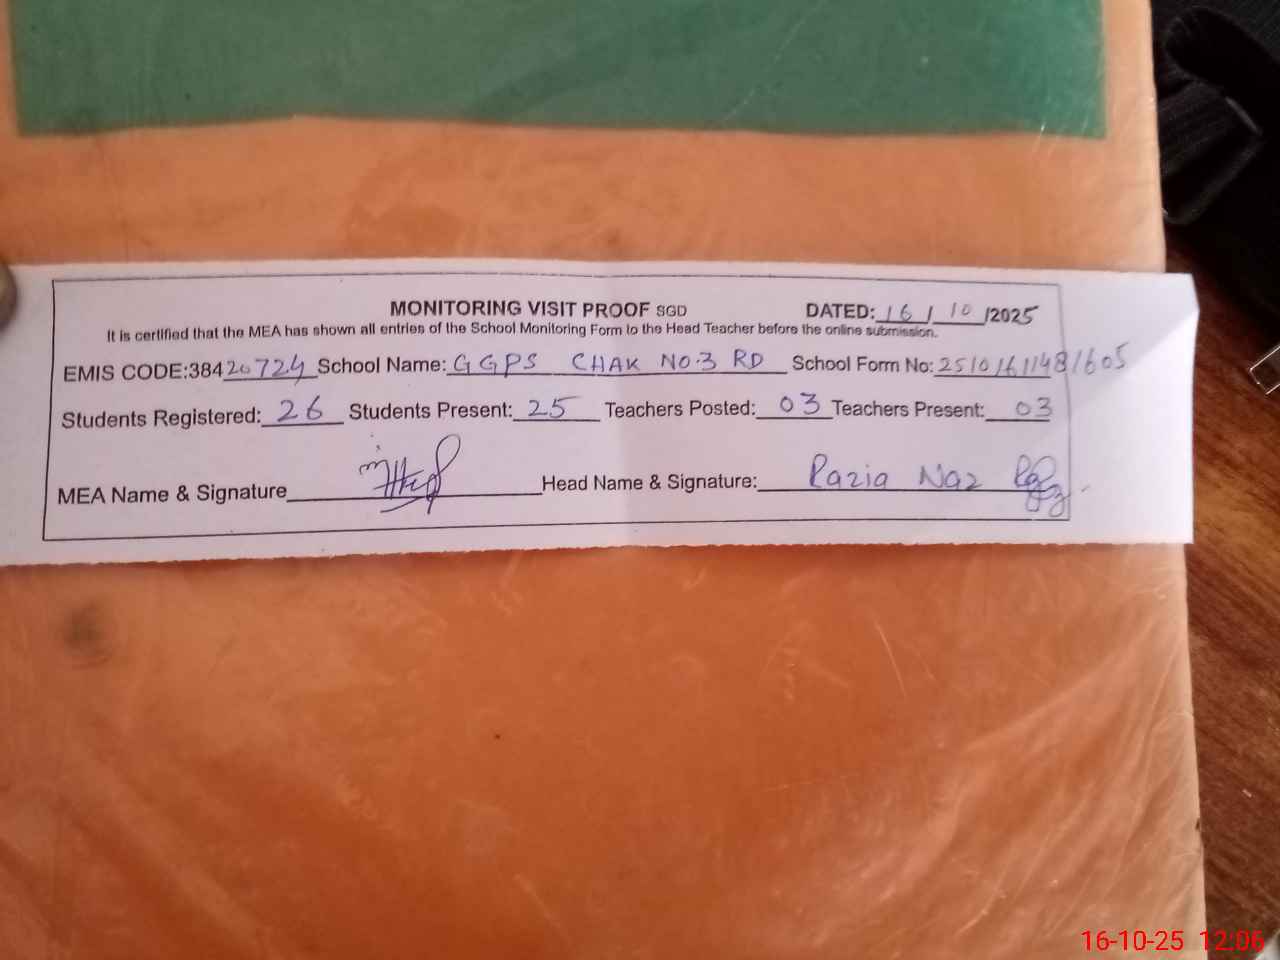 MONITORING VISIT PROOF SGD DATED: 16 / 10 /2025
It is certified that the MEA has shown all entries of the School Monitoring Form to the Head Teacher before the online submission.
EMIS CODE:38420724 School Name: GGPS CHAK NO.3 RD School Form No: 25101611481605
Students Registered: 26 Students Present: 25 Teachers Posted: 03 Teachers Present: 03
MEA Name & Signature Head Name & Signature: Razia Naz
16-10-25 12:06